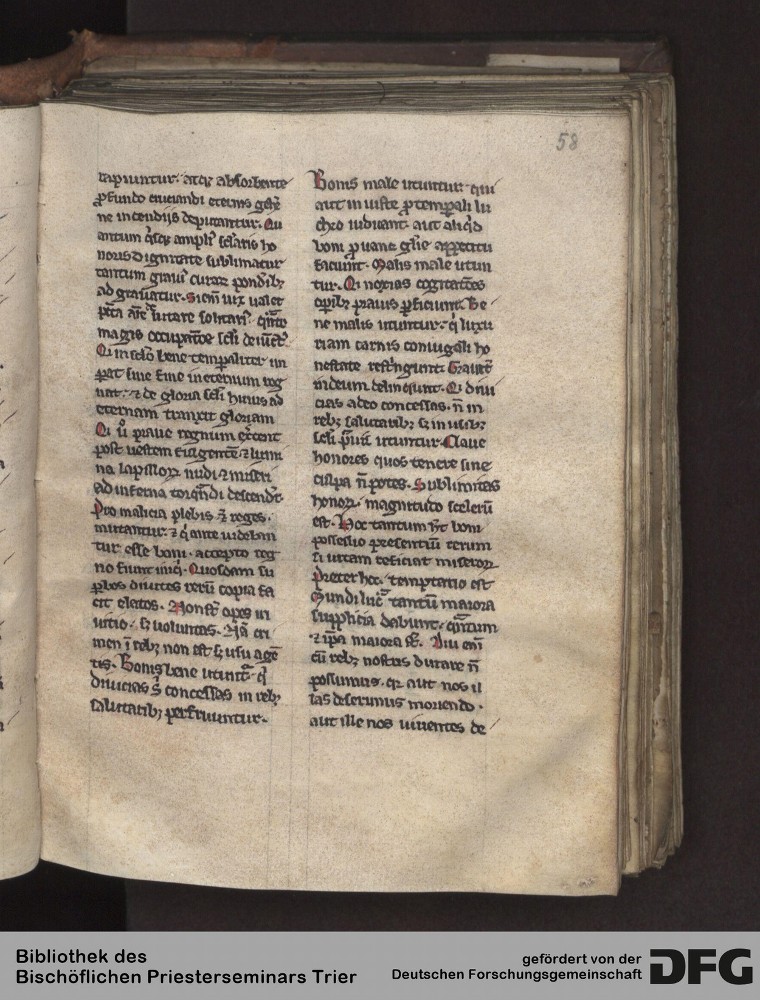 58
rapiuntur. atq; absorbente
ꝓfundo eiuciandi eternis gehē
ne incendijs deputantur. Qu
antum q̄sq; ampli᷒ sclaris ho
noris dignitate sublimatur
tantum grauī curaꝝ pondīb;
ad grauatur. Siem vix valet
magis occupatōe scli deiūct᷒
Qi in sclo bene temꝑaliter im
ꝑat sine fine in eternum reg
nat. ⁊ de gloria scli huius ad
eternam transit gloriam
Qi ů praue regnum exercent
post uestem fulgentē ⁊ lumi
na lapilloꝝ nudi ⁊ miseri
ad inferna torqn̄di descendt.
Pro malicia plebis reges.
mutantur. ⁊ q̄ ante uideban
tur esse boni. accepto reg
no fiunt iniq̄. Quosdam su
ꝑbos diuites reꝝ copia fa
cit elatos. Non sͭ opes in
uitio. sꝫ voluntas. Nā cri
men ī reb; non est sꝫ usu agē
tis. Bonis bene utunt᷒ q̄
diuicias concessas in reb;
salutarib; perfruuntur.
Bonis male utuntur qui
aut in iuste ꝓ temꝑali lu
chro iudicant. aut aliq̄d
boni ꝓ uane glīe appetitu
faciunt. Malis male utun
tur. Qi noxias cogitatōes
oꝑib; prauis ꝑficiunt. Be
ne malis utuntur. q̄ luxu
riam carnis coniugali ho
nestate restīngunt. Grauīt
in deum delinquunt. Qi diui
cias a deo concessas. n̄ in
reb; salutarib; sꝫ in usib;
scli utuntur. Claue
honores quos tenere sine
culpa n̄ potes. Sublimitas
honoꝝ. magnitudo scelerū
est. Hoc tantum hͭ boni
possessio presentiū rerum
si uitam reficiat miseroꝝ
Preter hoc. temptatio est
Mundi lucͣ tantū maiora
supplicia dabunt. q̄ntum
⁊ ipa maiora sͭ. Diu enī
cū reb; nostris durare n̄
possumus. qꝛ aut nos il
las deserimus moriendo.
aut ille nos uiuentes de
Bibliothek des
Bischöflichen Priesterseminars Trier
gefördert von der
Deutschen Forschungsgemeinschaft
DFG